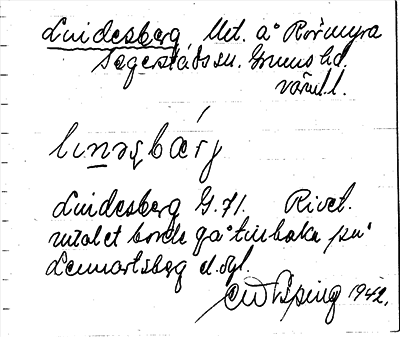 Lindesberg Uet. å Rörmyra
Segerstads sn. Grums hd.
värml.
linəsbærj
Lindesberg G. 71. Rivet.
uttalet borde gå tillbaka på
Lennartsberg el. dyl.
1942.